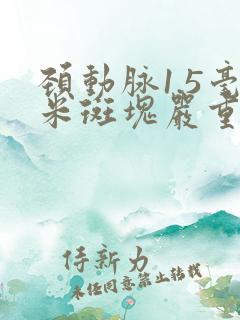 頚動脉15毫
米斑塊嚴重
侍新力
未经同意禁止转载